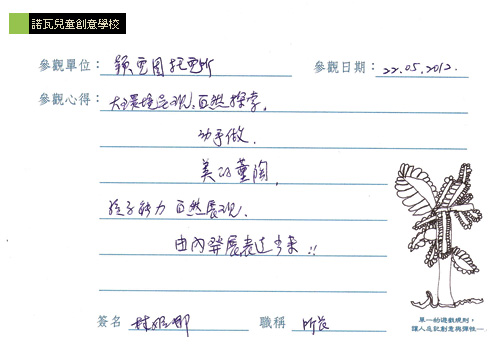 諾瓦兒童創意學校
參觀單位：
參觀日期：22.05.2012.
參觀心得：大環境呈現,自然探索,
动手做.
美的薰陶,
孩子能力 自然展现.
由內發展表达出來!!
簽名 林 娜 職稱 所長
單一的遊戲規則，
讓人忘記創意與彈性—